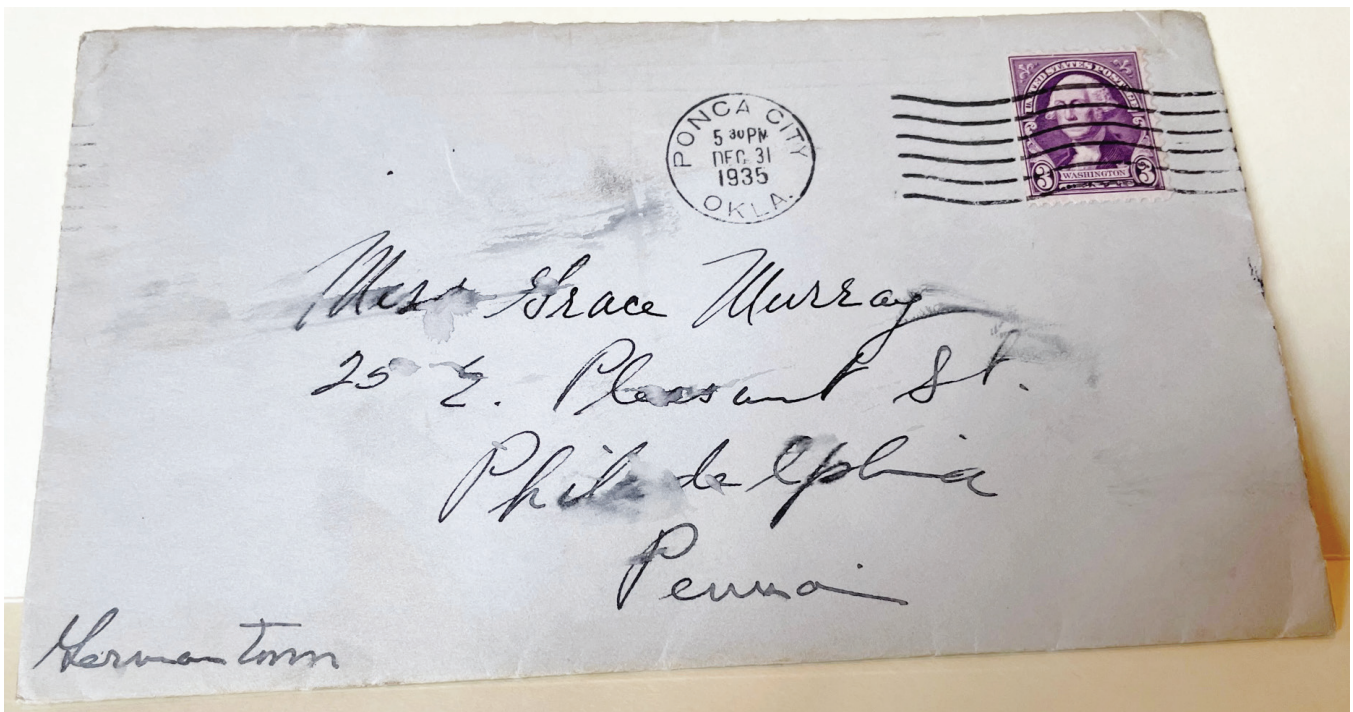 PONCA CITY
5 30 PM
DEC 31
1935
OKLA.
UNITED STATES POSTAGE
3 WASHINGTON 3
Miss Grace Murray
25 E. Pleasant St.
Philadelphia
Penna
Germantown